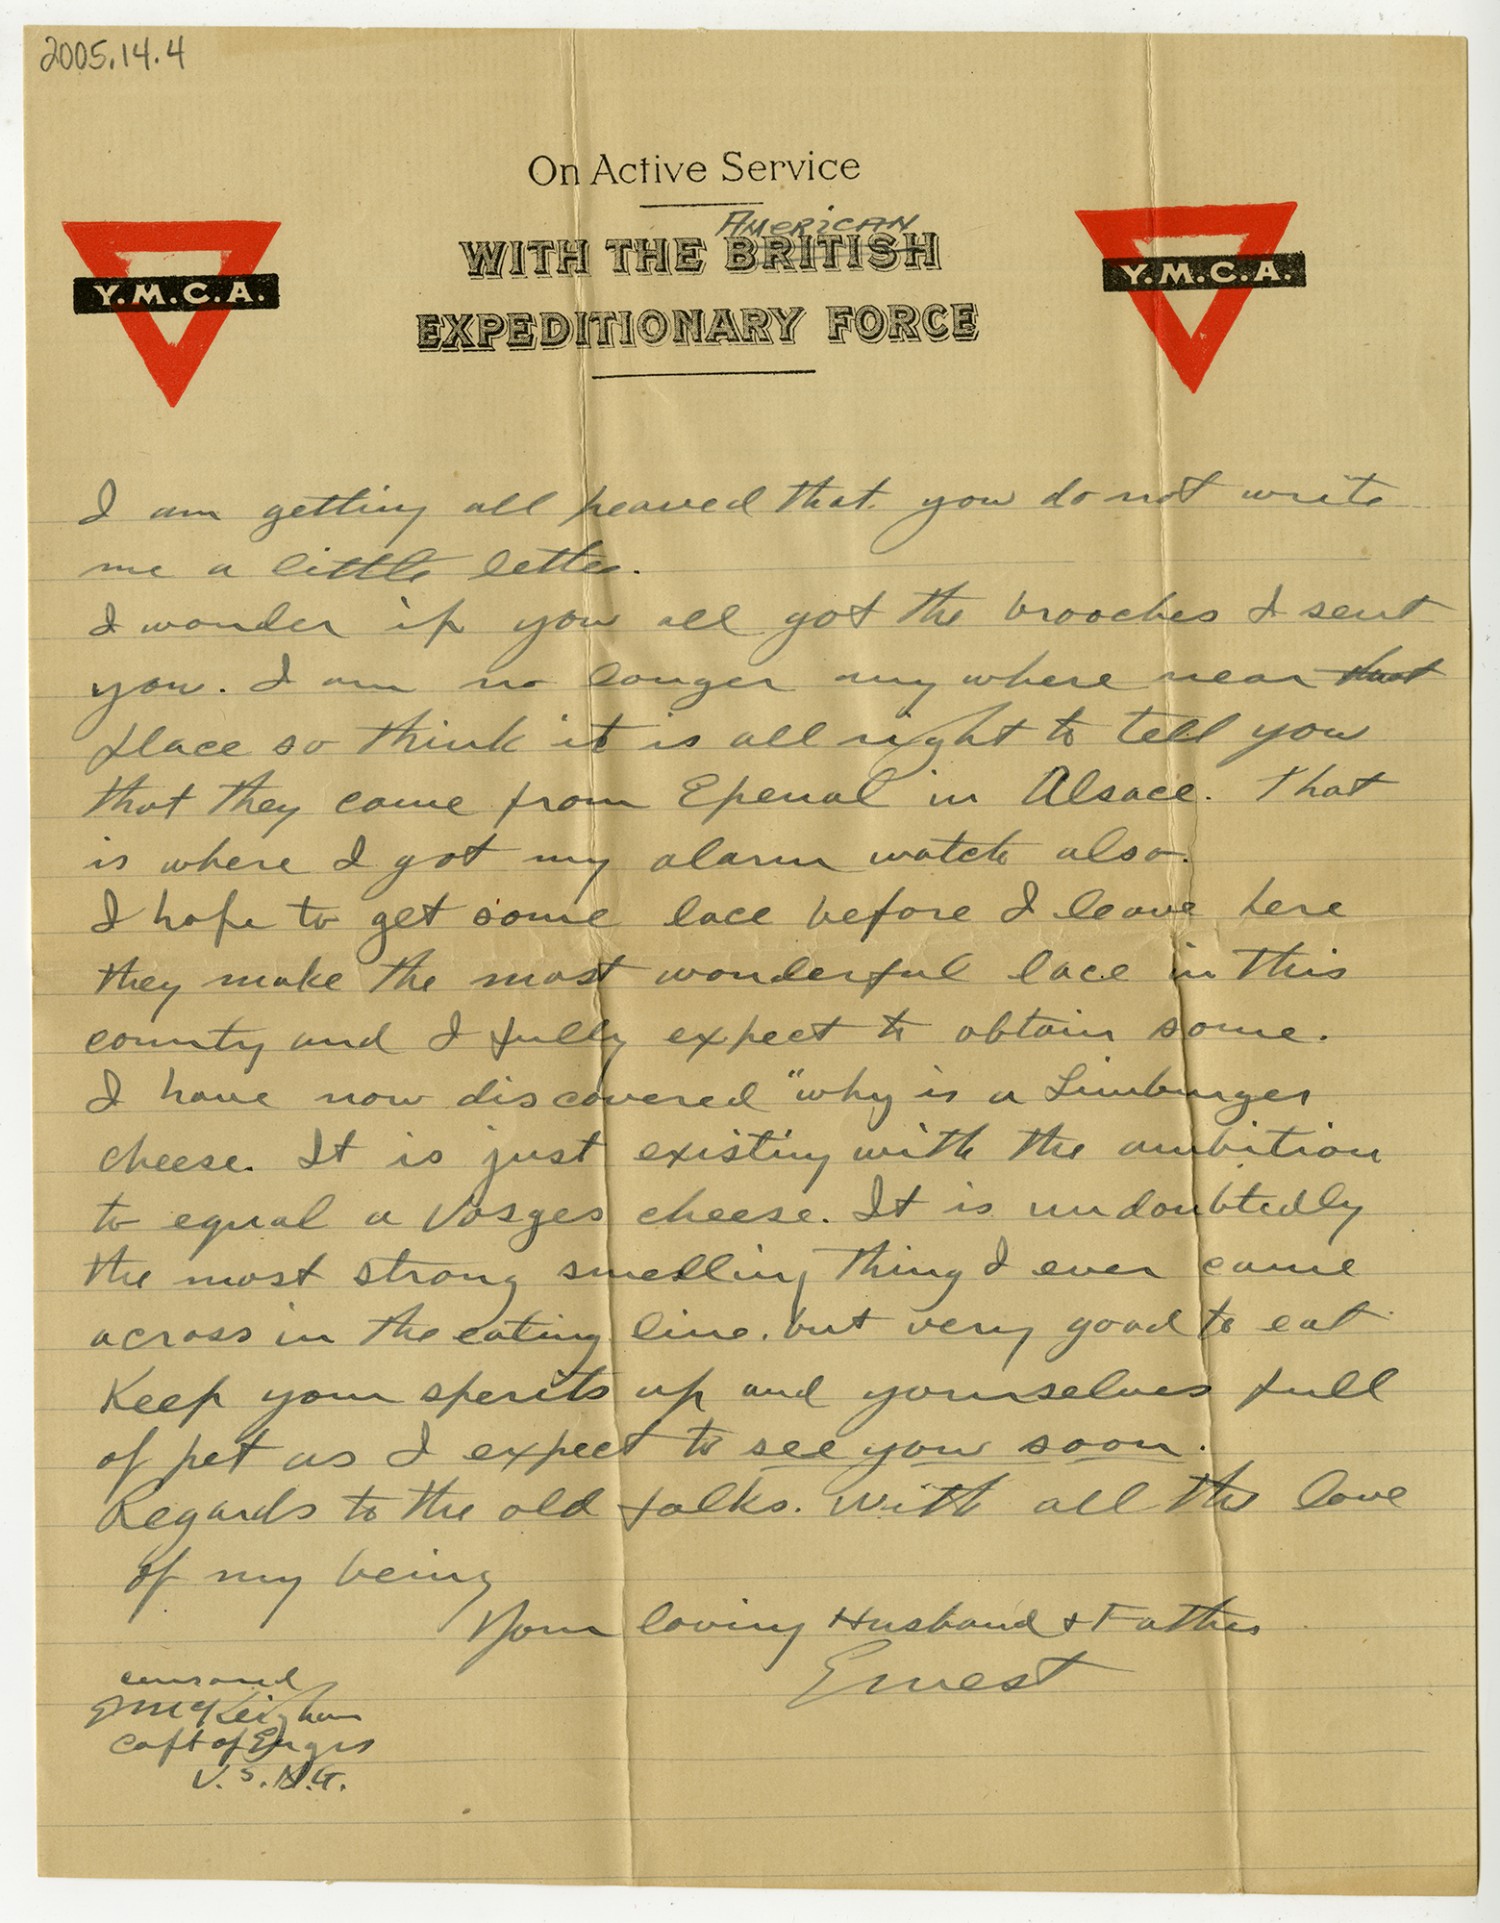 2005.14.4
On Active Service
AMERICAN
WITH THE BRITISH
EXPEDITIONARY FORCE
Y.M.C.A.
Y.M.C.A.
I am getting all peaved that you do not write
me a little letter.
I wonder if you all got the brooches I sent
you. I am no longer any where near that
place so think it is all right to tell you
that they came from Epenal in Alsace. That
is where I got my alarm watch also.
I hope to get some lace before I leave here
they make the most wonderful lace in this
county and I fully expect to obtain some.
I have now discovered "why is a Limburger
cheese. It is just existing with the ambition
to equal a Vosges cheese. It is undoubtedly
the most strong smelling thing I ever came
across in the eating line. but very good to eat
Keep your sperits up and yourselves full
of pet as I expect to see you soon.
Regards to the old folks. With all the love
of my being
Your loving Husband + Father
Ernest
censored
McKeighan
Capt of Engrs
U.S.N.G.